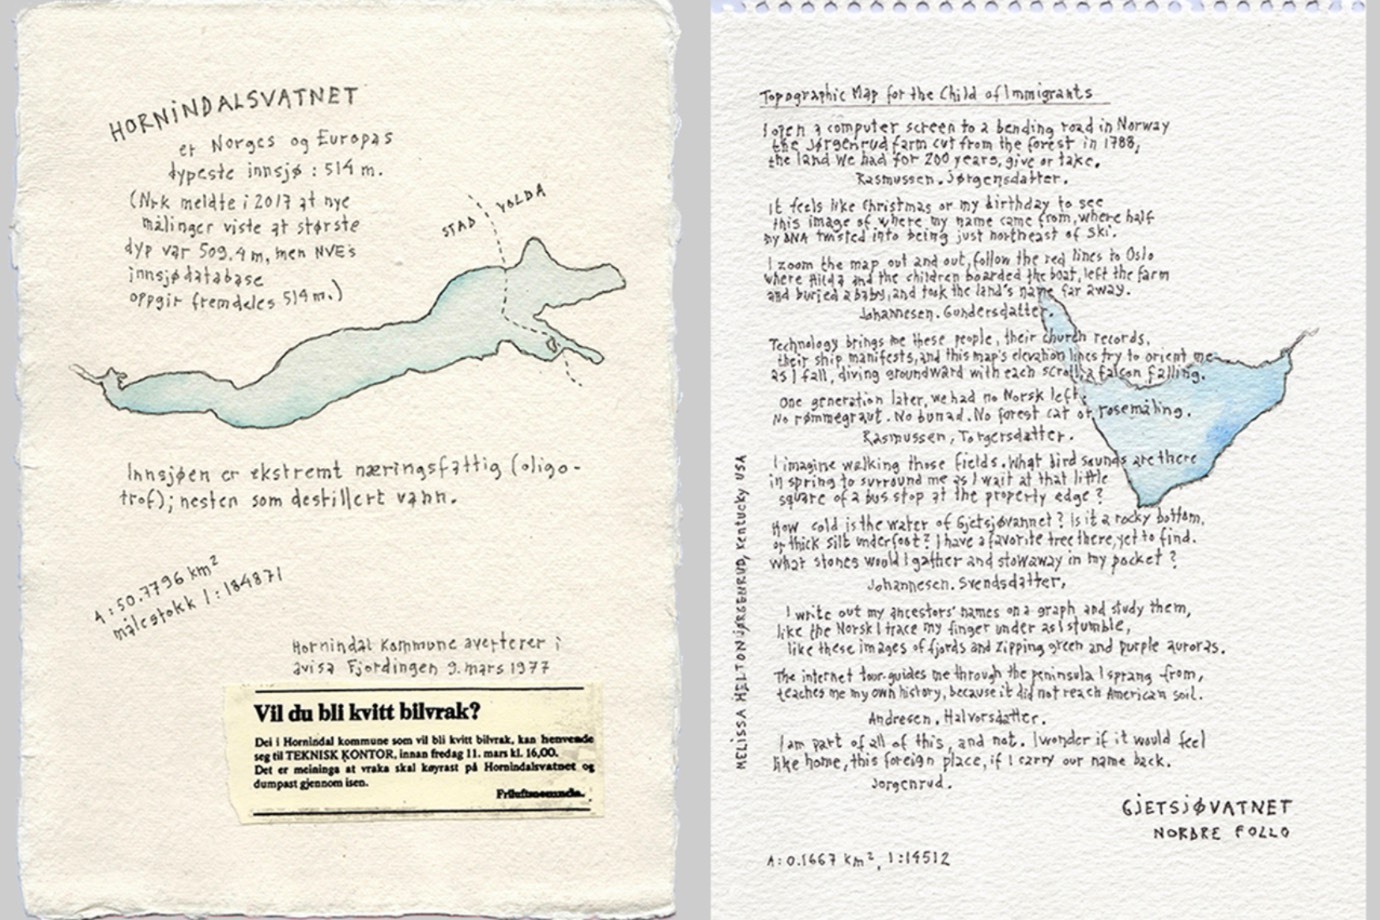 HORNINDALSVATNET
er Norges og Europas
dypeste innsjø : 514 m.
(Nrk meldte i 2017 at nye
målinger viste at største
dyp var 509.4 m, men NVE's
innsjødatabase
oppgir fremdeles 514 m.)
STAD VOLDA
Innsjøen er ekstremt næringsfattig (oligo-
trof); nesten som destillert vann.
A : 50.7796 km²
målestokk 1 : 184871
Hornindal Kommune averterer i
avisa Fjordingen 9. mars 1977
Vil du bli kvitt bilvrak?
Dei i Hornindal kommune som vil bli kvitt bilvrak, kan henvende
seg til TEKNISK KONTOR, innan fredag 11. mars kl. 16,00.
Det er meininga at vraka skal køyrast på Hornindalsvatnet og
dumpast gjennom isen.
Friluftsnemnda.
Topographic Map for the Child of Immigrants
I open a computer screen to a bending road in Norway
the Jørgenrud farm cut from the forest in 1788,
the land we had for 200 years, give or take.
Rasmussen. Jørgensdatter.
It feels like Christmas or my birthday to see
this image of where my name came from, where half
my DNA twisted into being just northeast of Ski.
I zoom the map out and out, follow the red lines to Oslo
where Hilda and the children boarded the boat, left the farm
and buried a baby, and took the land's name far away.
Johannesen. Gundersdatter.
Technology brings me these people, their church records,
their ship manifests, and this map's elevation lines try to orient me
as I fall, diving groundward with each scroll, a falcon falling.
One generation later, we had no Norsk left.
No rømmegraut. No bunad. No forest cat or rosemåling.
Rasmussen, Torgersdatter.
I imagine walking those fields. What bird sounds are there
in spring to surround me as I wait at that little
square of a bus stop at the property edge?
How cold is the water of Gjetsjøvannet? Is it a rocky bottom,
or thick silt underfoot? I have a favorite tree there, yet to find.
What stones would I gather and stowaway in my pocket?
Johannesen. Svendsdatter,
I write out my ancestors' names on a graph and study them,
like the Norsk I trace my finger under as I stumble,
like these images of fjords and zipping green and purple auroras.
The internet tour guides me through the peninsula I sprang from,
teaches me my own history, because it did not reach American soil.
Andresen, Halvorsdatter.
I am part of all of this, and not. I wonder if it would feel
like home, this foreign place, if I carry our name back.
Jorgenrud.
MELISSA HELTON JØRGENRUD, Kentucky USA
GJETSJØVATNET
NORDRE FOLLO
A: 0.1667 km², 1:14512